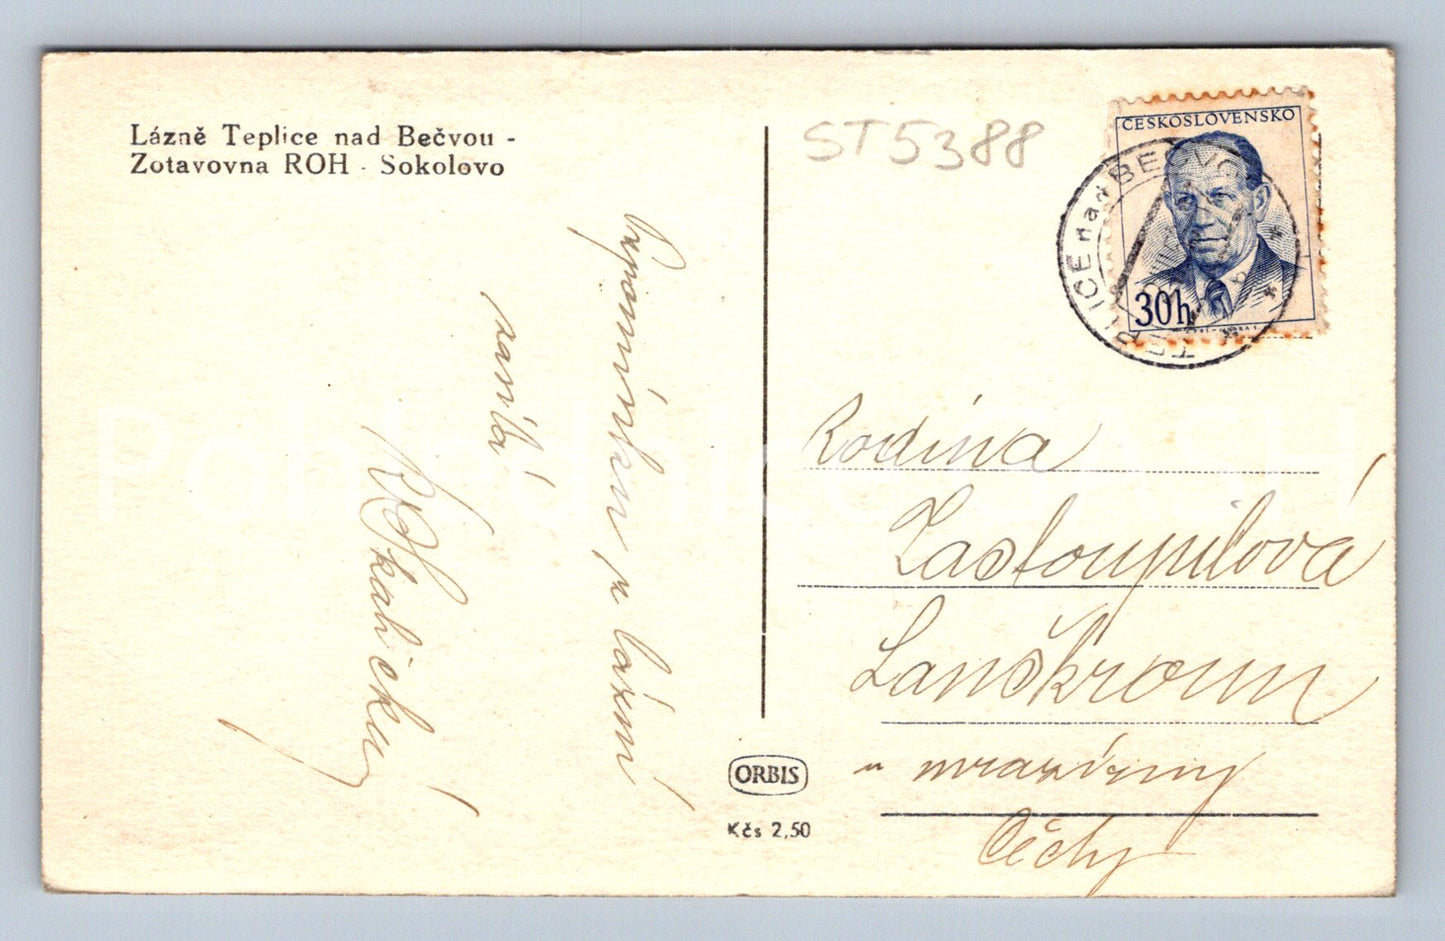 Lázně Teplice nad Bečvou -
Zotavovna ROH - Sokolovo
ST5388
ČESKOSLOVENSKO
30h
TEPLICE nad BEČVOU
Vzpomínku z lázní
zasílá
Skalická
Rodina
Zastoupilová
Lanškroun
u mrazírny
Čechy
ORBIS
Kčs 2,50